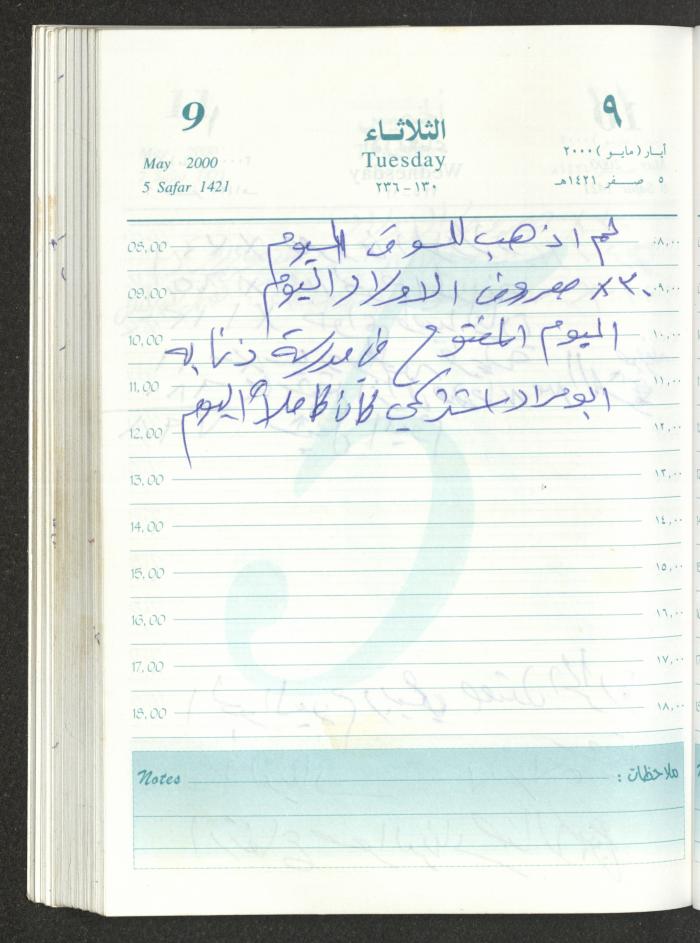 9
٩
الثلاثاء
May 2000
Tuesday
أيار (مايو) ٢٠٠٠
5 Safar 1421
١٣٠-٢٣٦
٥ صفر ١٤٢١هـ
08.00 لم اذهب للسوق اليوم ٨,٠٠
09.00 ٣٠x مصروف الاولاد اليوم ٩,٠٠
10.00 اليوم المفتوح في مدرسة ذنابه ١٠,٠٠
11.00 ابو مراد كان كاملاً اليوم ١١,٠٠
12.00 ١٢,٠٠
13.00 ١٣,٠٠
14.00 ١٤,٠٠
15.00 ١٥,٠٠
16.00 ١٦,٠٠
17.00 ١٧,٠٠
18.00 ١٨,٠٠
Notes ملاحظات :